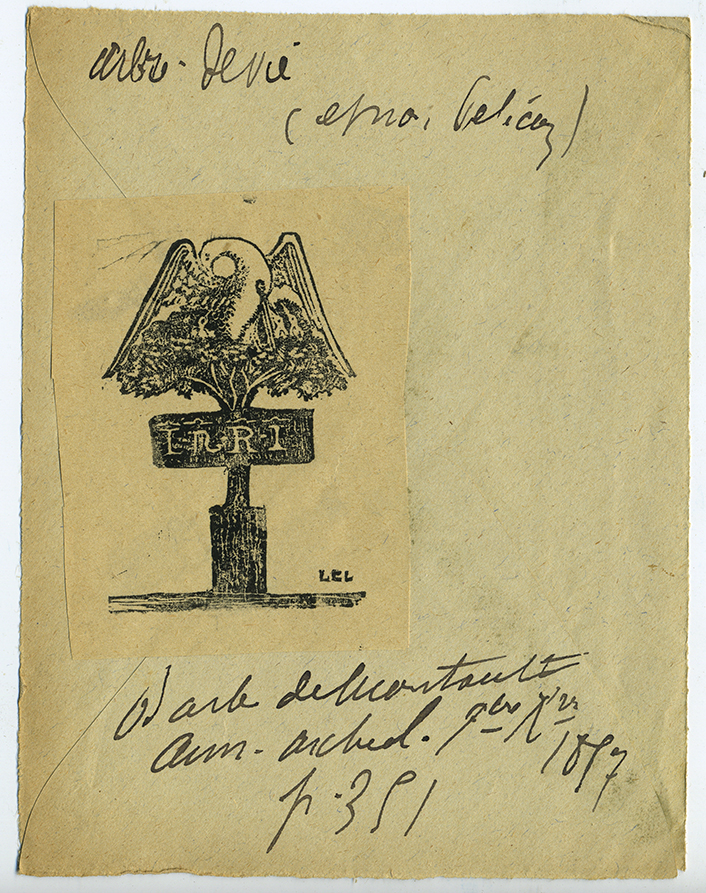 arbre - de vie
( et no. Pelican )
I·n·R·I
LEL
Barb de Montault
ann. archeol. 9bre Xbre
1857
p. 351